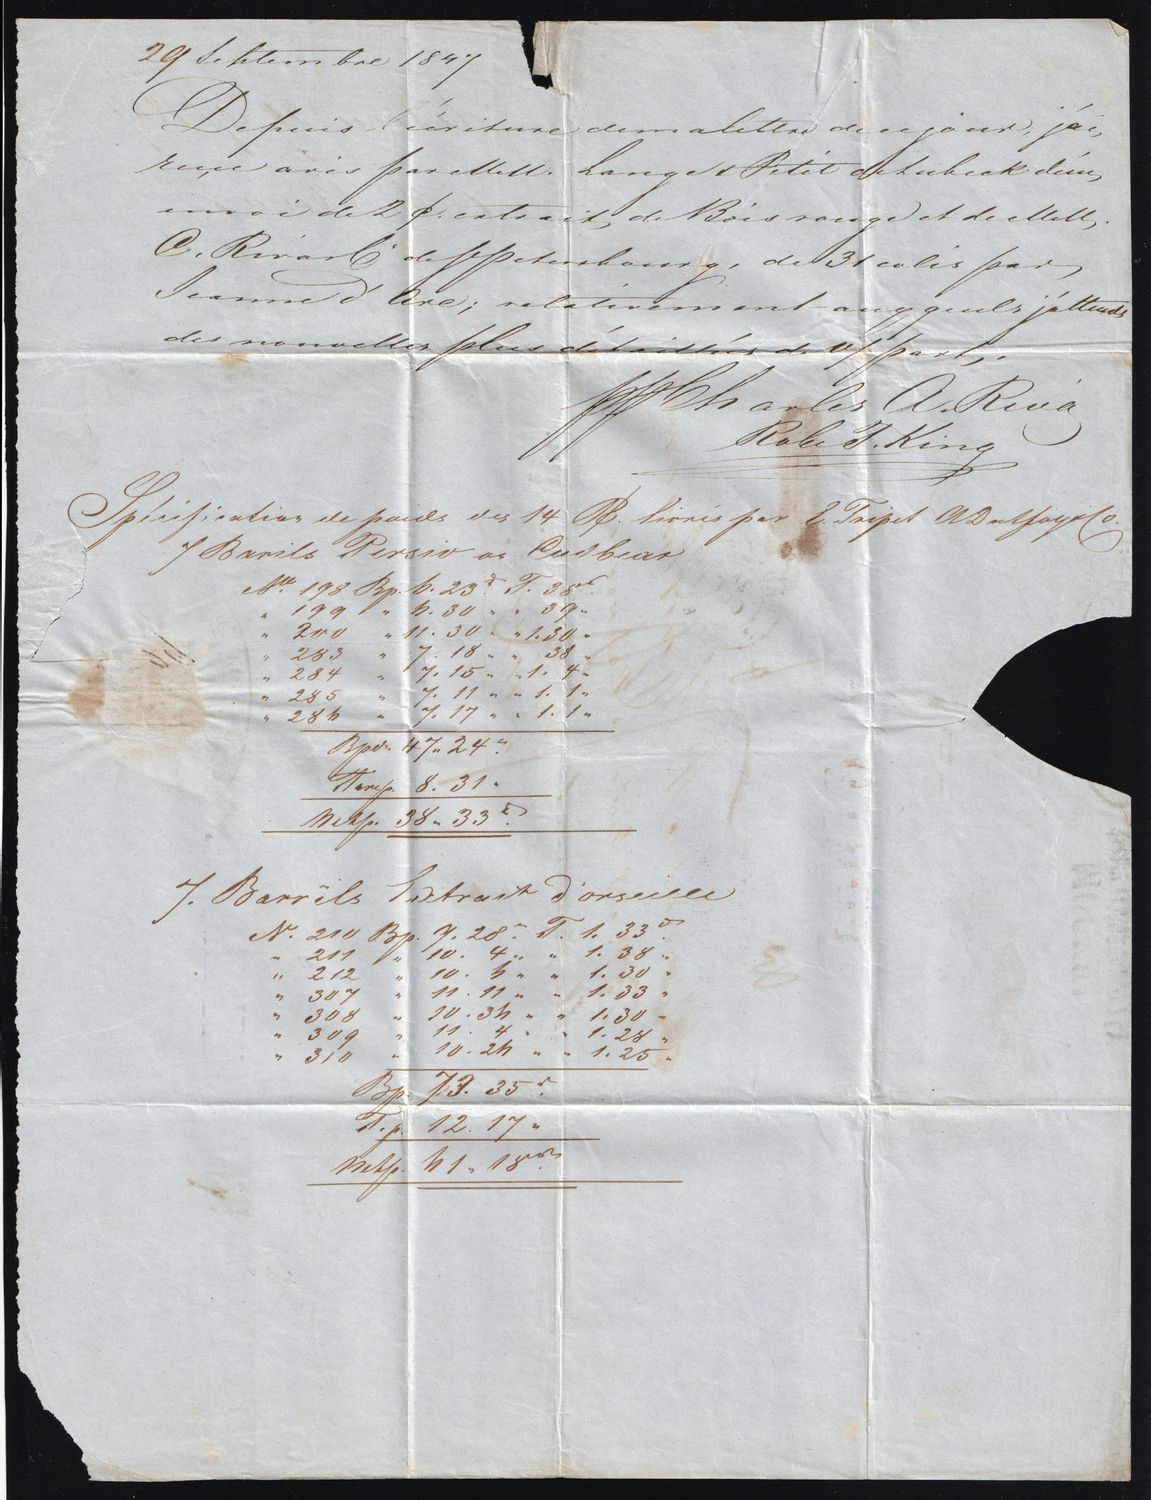 29 Septembre 1847
Depuis l'écriture de ma lettre de ce jour, j'ai
reçu avis par Mess. Lange & Petit de Lubeck d'un
envoi de 2 p. extrait de Bois rouge et de Mess.
C. Riva & C° de St Petersbourg, de 31 colis par
Jeanne d'Arc; relativement auxquels j'attends
des nouvelles plus détaillés de part.
Charles A. Riva
Robt T. King
Spécification de poids des 14 B. livrés par E Tripet A Dutfoy & Co.
7 Barils Persio ou Cudbear
No. 198 Bp. 6. 23 d T. 38 d.
" 199 " 6. 30 " " 39 "
" 200 " 11. 30 " " 1. 30 "
" 283 " 7. 18 " " 38 "
" 284 " 7. 15 " " 1. 4 "
" 285 " 7. 11 " " 1. 1 "
" 286 " 7. 17 " " 1. 1 "
Bp. 47. 24 "
Tarap. 8. 31 "
Netp. 38. 33 d.
7. Barrils Extrait d'orseille
No. 210 Bp. 9. 28 " T. 1. 33 d
" 211 " 10. 4 " " 1. 38 "
" 212 " 10. 6 " " 1. 30 "
" 307 " 11. 11 " " 1. 33 "
" 308 " 10. 36 " " 1. 30 "
" 309 " 11. 4 " " 1. 28 "
" 310 " 10. 26 " " 1. 25 "
Bp. 73. 35 d.
T.p. 12. 17 "
Netp. 61. 18 d.